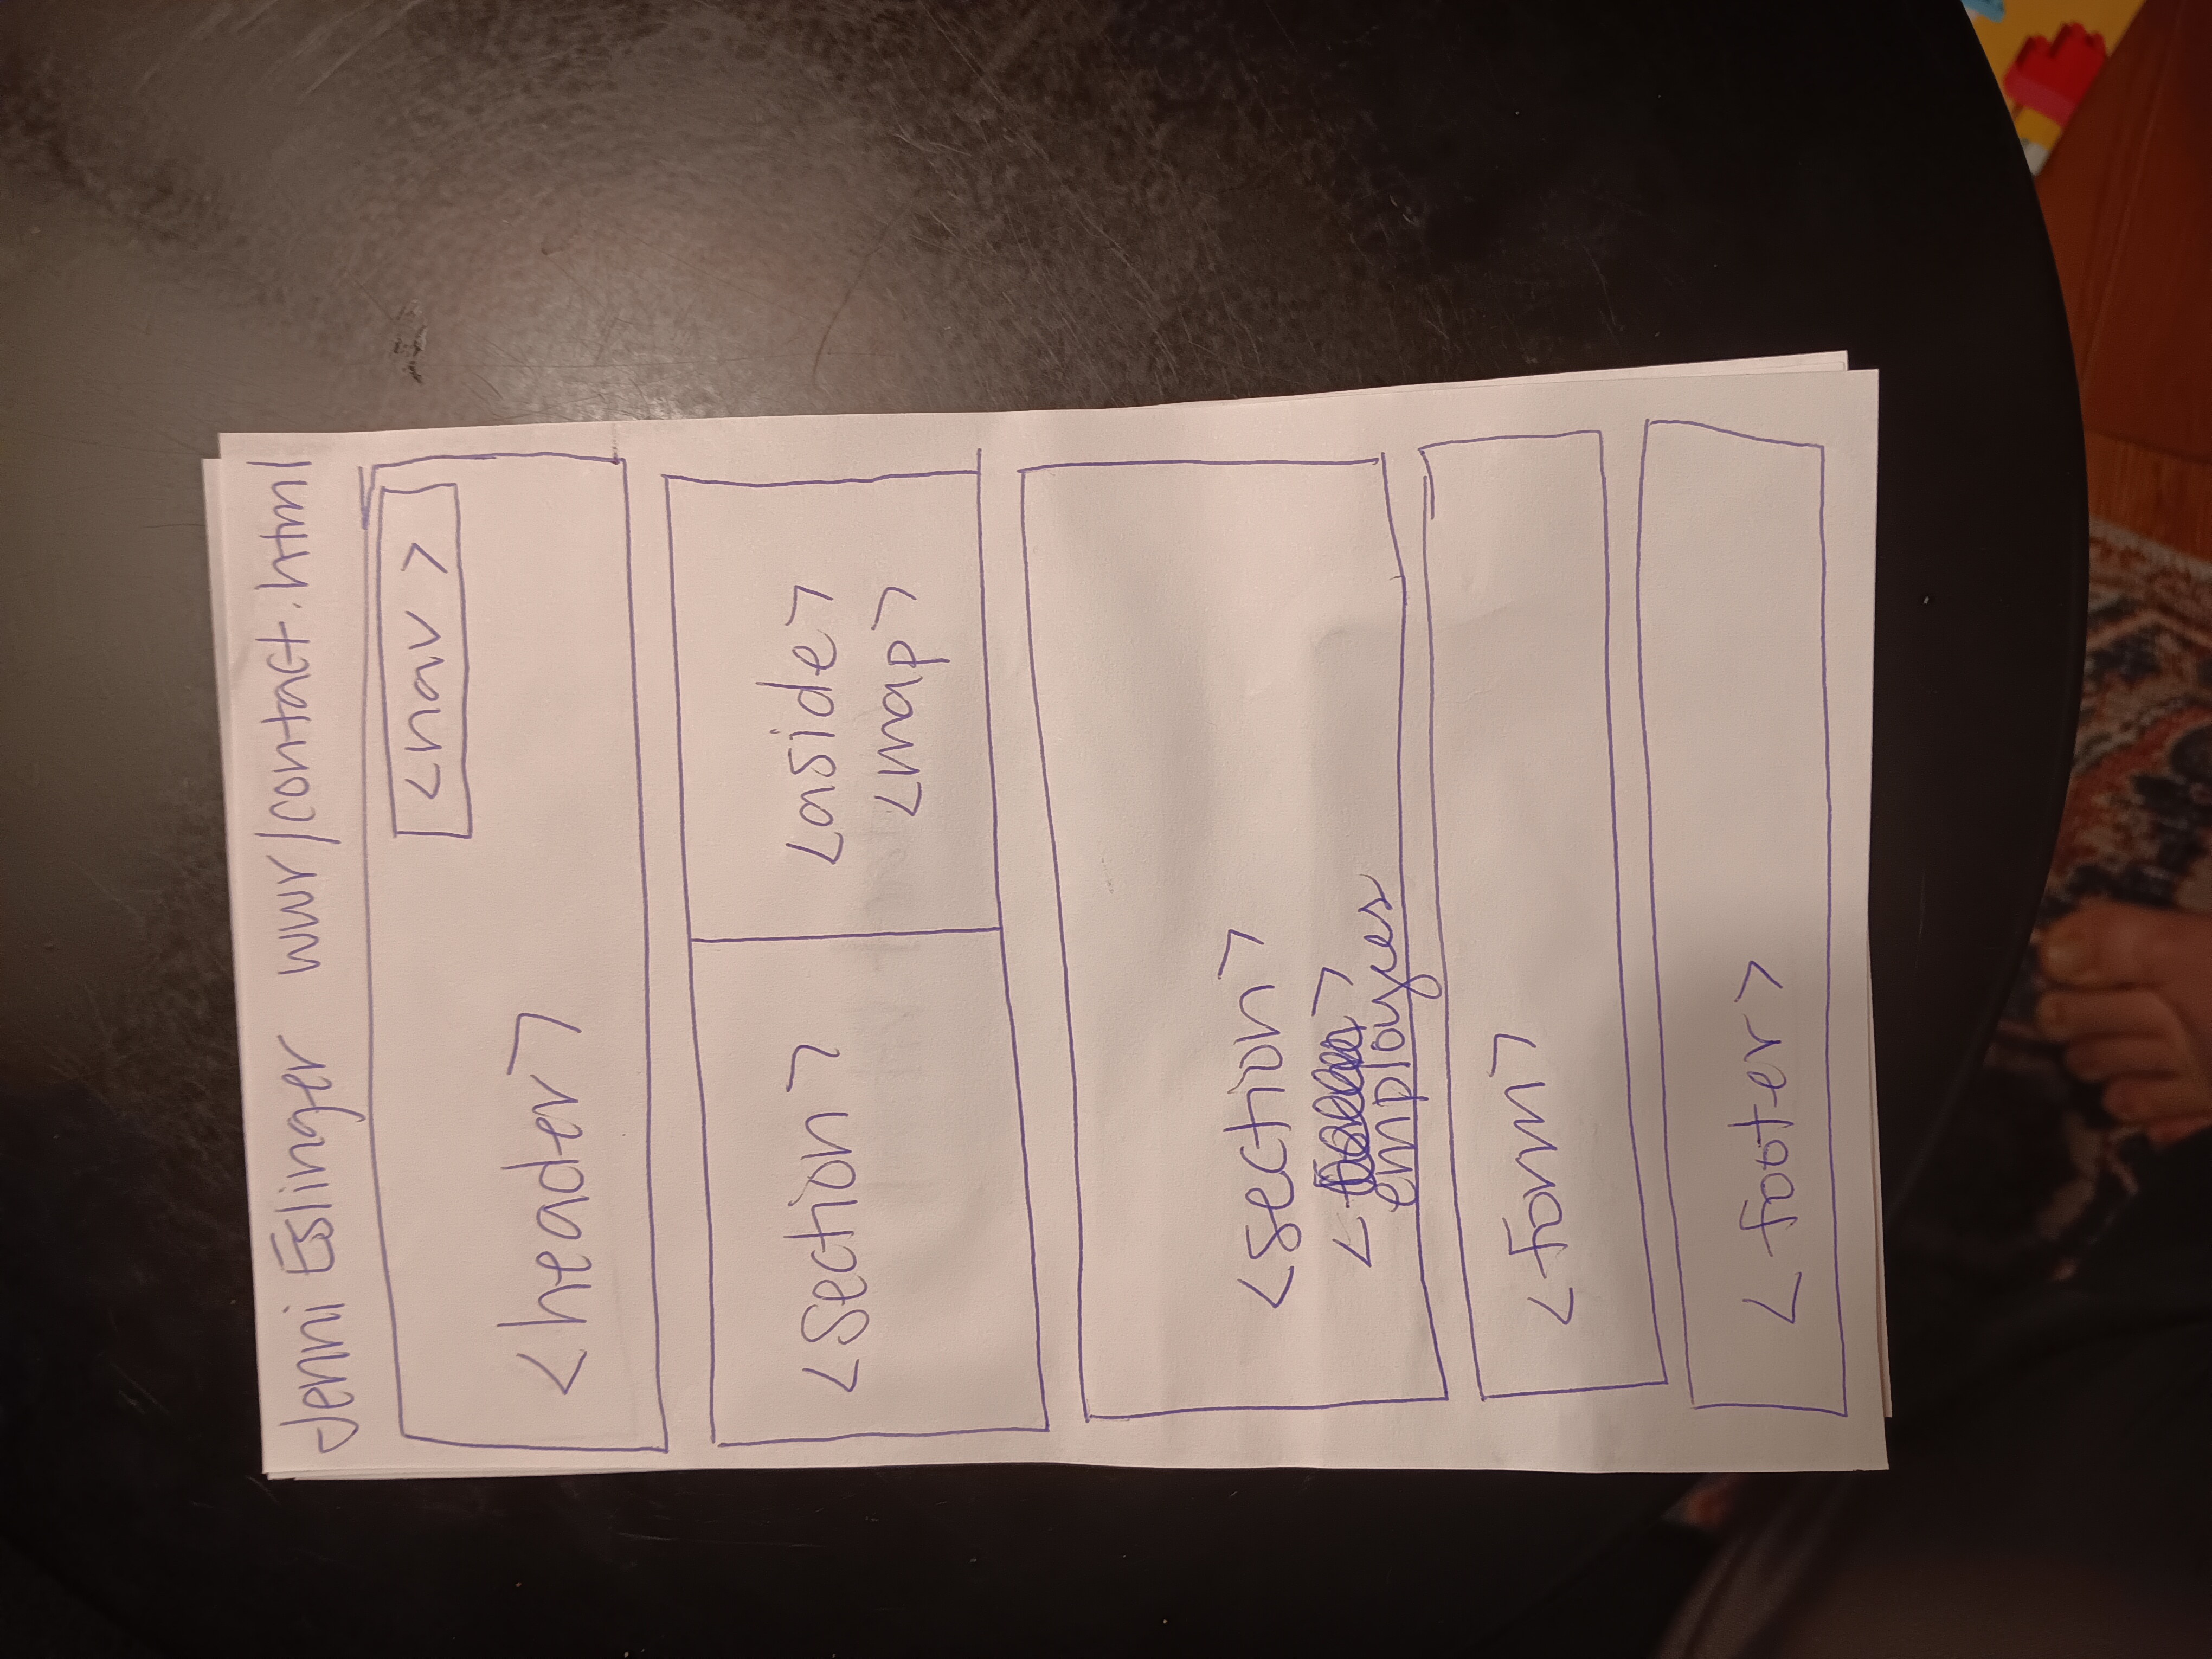 Jenni Eslinger wwr/contact.html
<nav>
<header>
<section>
<aside>
<map>
<section>
< >
employees
<form>
<footer>